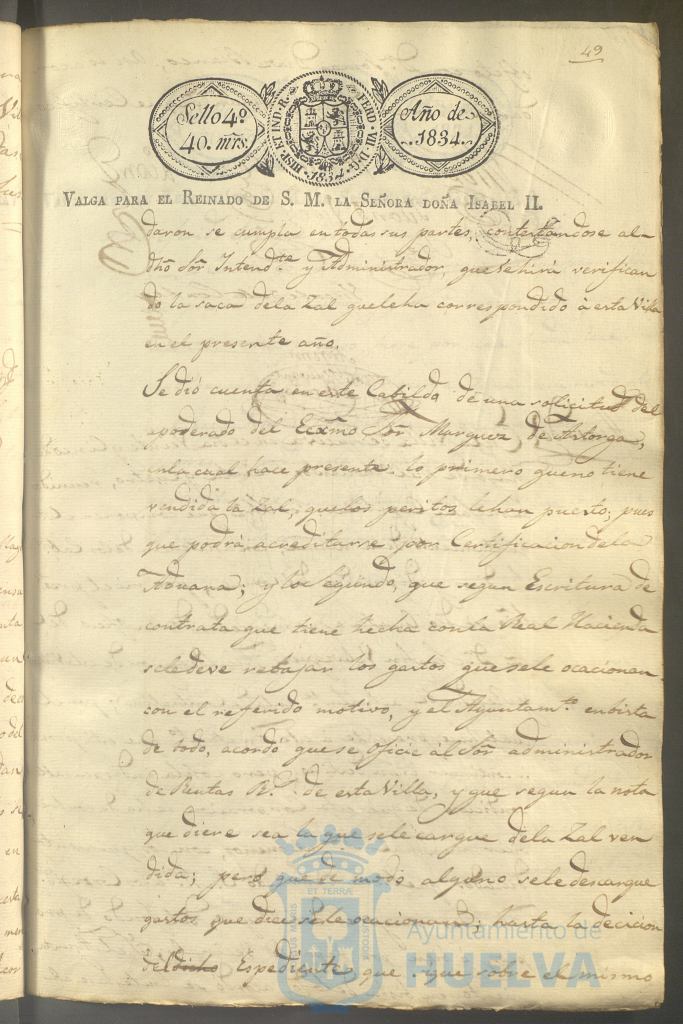 49
Sello 4º
40. mrs.
HISP. ET IND. R. FERD. VII. D. G.
1834
Año de
1834.
VALGA PARA EL REINADO DE S. M. LA SEÑORA DOÑA ISABEL II.
daron se cumpla en todas sus partes, contestandose al
dho Sor Intendte y Administrador, que se hirá verifican
do la saca dela Zal que leha correspondido à esta Villa
en el presente año.
Se dió cuenta en este Cabildo de una solicitud del
apoderado del Excmo Sor Marquez de Astorga,
enla cual hace presente lo primero queno tiene
vendida la Zal, quelos peritos lehan puesto, pues
que podrá acreditarse por Certificacion dela
Aduana; y lo segundo, que segun Escritura de
contrata que tiene hecha conla Real Hacienda
sele deve rebajar los gastos que sele ocacionan
con el referido motivo, y el Ayuntamto en bista
de todo, acordó que se oficie al Sor administrador
de Rentas Rs de esta Villa, y que segun la nota
que diere sea la que sele cargue dela Zal ven
dida; pero que de modo alguno sele descargue
gastos que dice sele ocacionan; hasta la decicion
del dicho Espediente que sigue sobre el mismo
ET TERRA
Ayuntamiento de
HUELVA